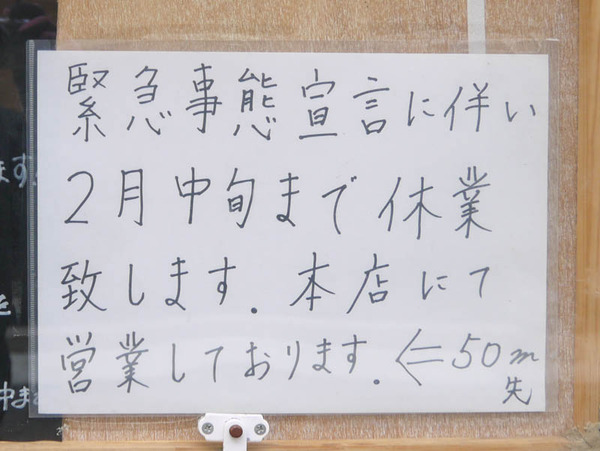 緊急事態宣言に伴い
2月中旬まで休業
致します. 本店にて
営業しております. ⇐50m
先